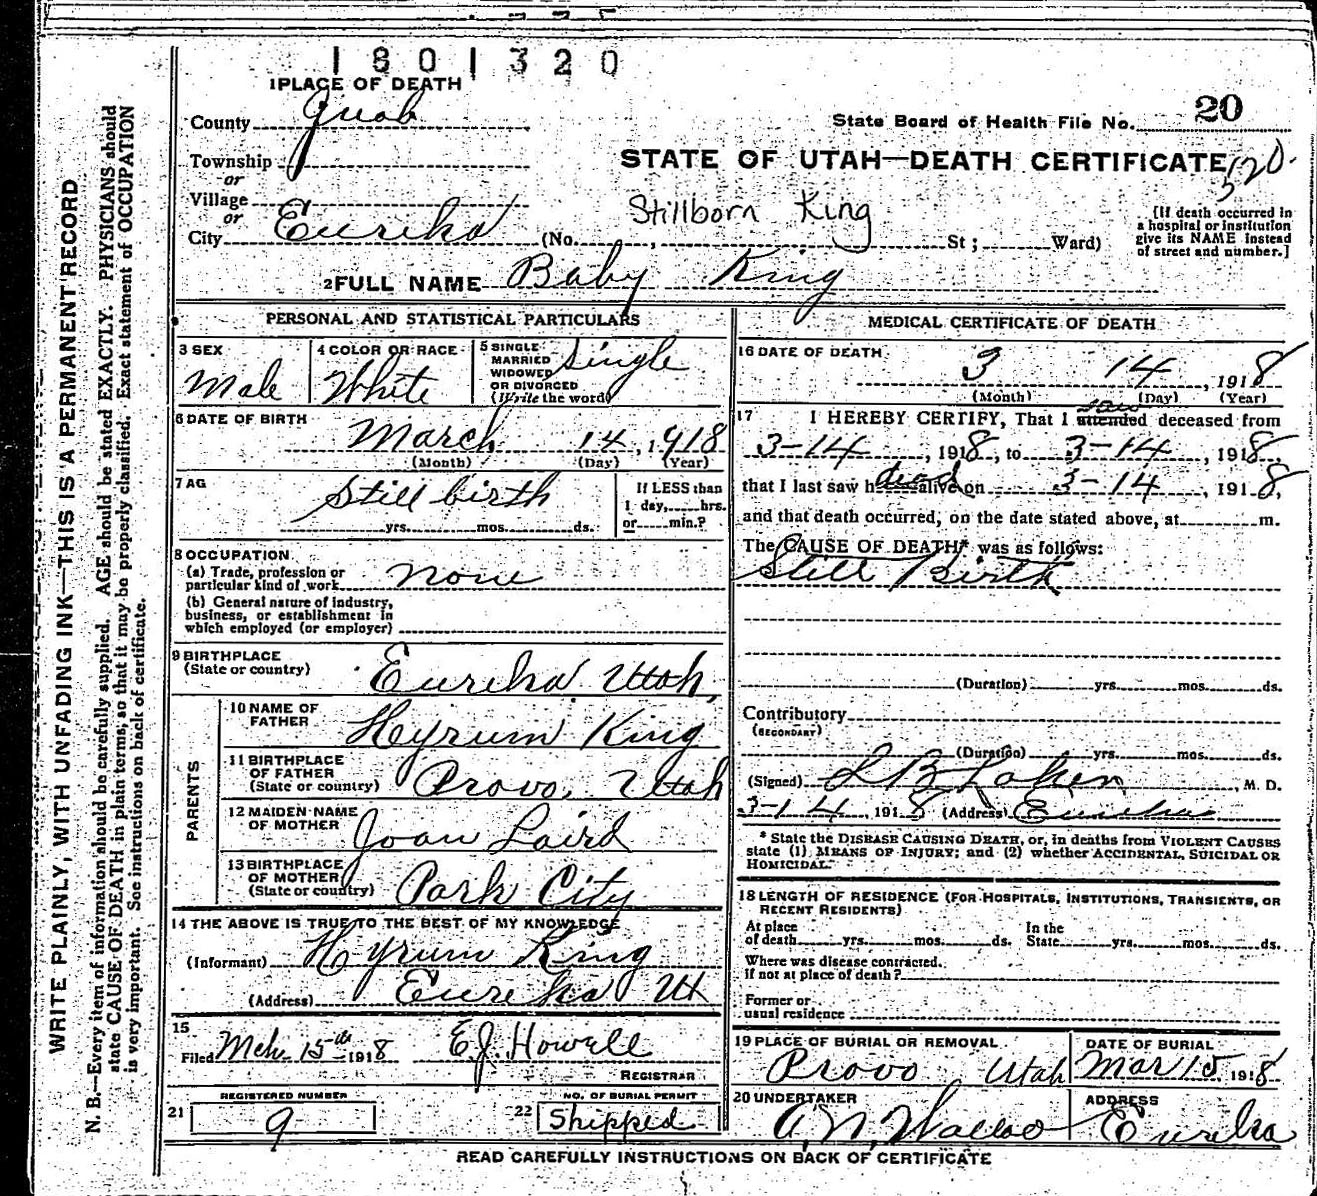 1801320
1 PLACE OF DEATH
County Juab
State Board of Health File No. 20
Township
or
STATE OF UTAH—DEATH CERTIFICATE
Village
or
Stillborn King
City Eureka (No. , St; Ward)
[If death occurred in
a hospital or institution
give its NAME instead
of street and number.]
2 FULL NAME Baby King
PERSONAL AND STATISTICAL PARTICULARS
3 SEX
Male
4 COLOR OR RACE
White
5 SINGLE
MARRIED
WIDOWED
OR DIVORCED
(Write the word)
Single
6 DATE OF BIRTH
March 14, 1918
(Month) (Day) (Year)
7 AG
Still birth
yrs. mos. ds.
If LESS than
1 day, hrs.
or min.?
8 OCCUPATION
(a) Trade, profession or
particular kind of work none
(b) General nature of industry,
business, or establishment in
which employed (or employer)
9 BIRTHPLACE
(State or country) Eureka Utah,
PARENTS
10 NAME OF
FATHER Heyrum King
11 BIRTHPLACE
OF FATHER
(State or country) Provo, Utah
12 MAIDEN NAME
OF MOTHER Joan Laird
13 BIRTHPLACE
OF MOTHER
(State or country) Park City
14 THE ABOVE IS TRUE TO THE BEST OF MY KNOWLEDGE
(Informant) Hyrum King
(Address) Eureka Ut
15
Filed Mch 15th 1918 E.J. Howell
REGISTRAR
REGISTERED NUMBER
21 9
NO. OF BURIAL PERMIT
22 Shipped
MEDICAL CERTIFICATE OF DEATH
16 DATE OF DEATH
3 14, 1918
(Month) (Day) (Year)
17 I HEREBY CERTIFY, That I attended saw deceased from
3-14, 1918, to 3-14, 1918,
that I last saw h alive dead on 3-14, 1918,
and that death occurred, on the date stated above, at m.
The CAUSE OF DEATH* was as follows:
Still Birth
(Duration) yrs. mos. ds.
Contributory
(SECONDARY)
(Duration) yrs. mos. ds.
(Signed) , M. D.
3-14, 1918 (Address) Eureka
* State the DISEASE CAUSING DEATH, or, in deaths from VIOLENT CAUSES
state (1) MEANS OF INJURY; and (2) whether ACCIDENTAL, SUICIDAL OR
HOMICIDAL.
18 LENGTH OF RESIDENCE (FOR HOSPITALS, INSTITUTIONS, TRANSIENTS, OR
RECENT RESIDENTS)
At place
of death yrs. mos. ds.
In the
State yrs. mos. ds.
Where was disease contracted.
if not at place of death?
Former or
usual residence
19 PLACE OF BURIAL OR REMOVAL
Provo Utah
DATE OF BURIAL
Mar 15, 1918
20 UNDERTAKER
A. N.
ADDRESS
Eureka
READ CAREFULLY INSTRUCTIONS ON BACK OF CERTIFICATE
WRITE PLAINLY, WITH UNFADING INK—THIS IS A PERMANENT RECORD
N. B.—Every item of information should be carefully supplied. AGE should be stated EXACTLY. PHYSICIANS should
state CAUSE OF DEATH in plain terms, so that it may be properly classified. Exact statement of OCCUPATION
is very important. See instructions on back of certificate.